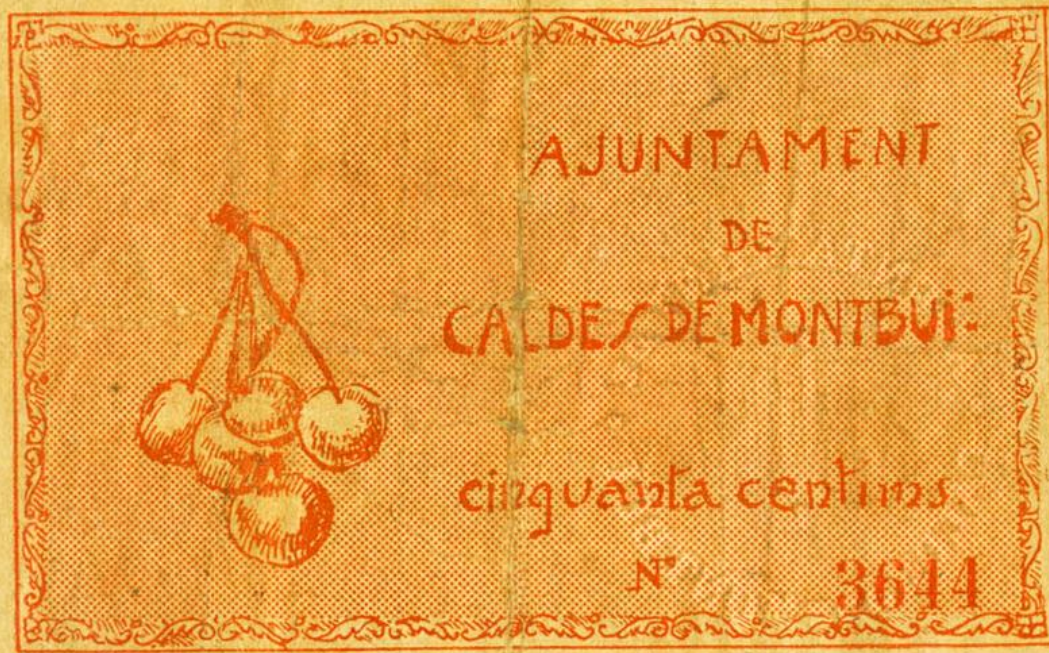 AJUNTAMENT
DE
CALDES DE MONTBUI:
cinquanta centims
Nº 3644